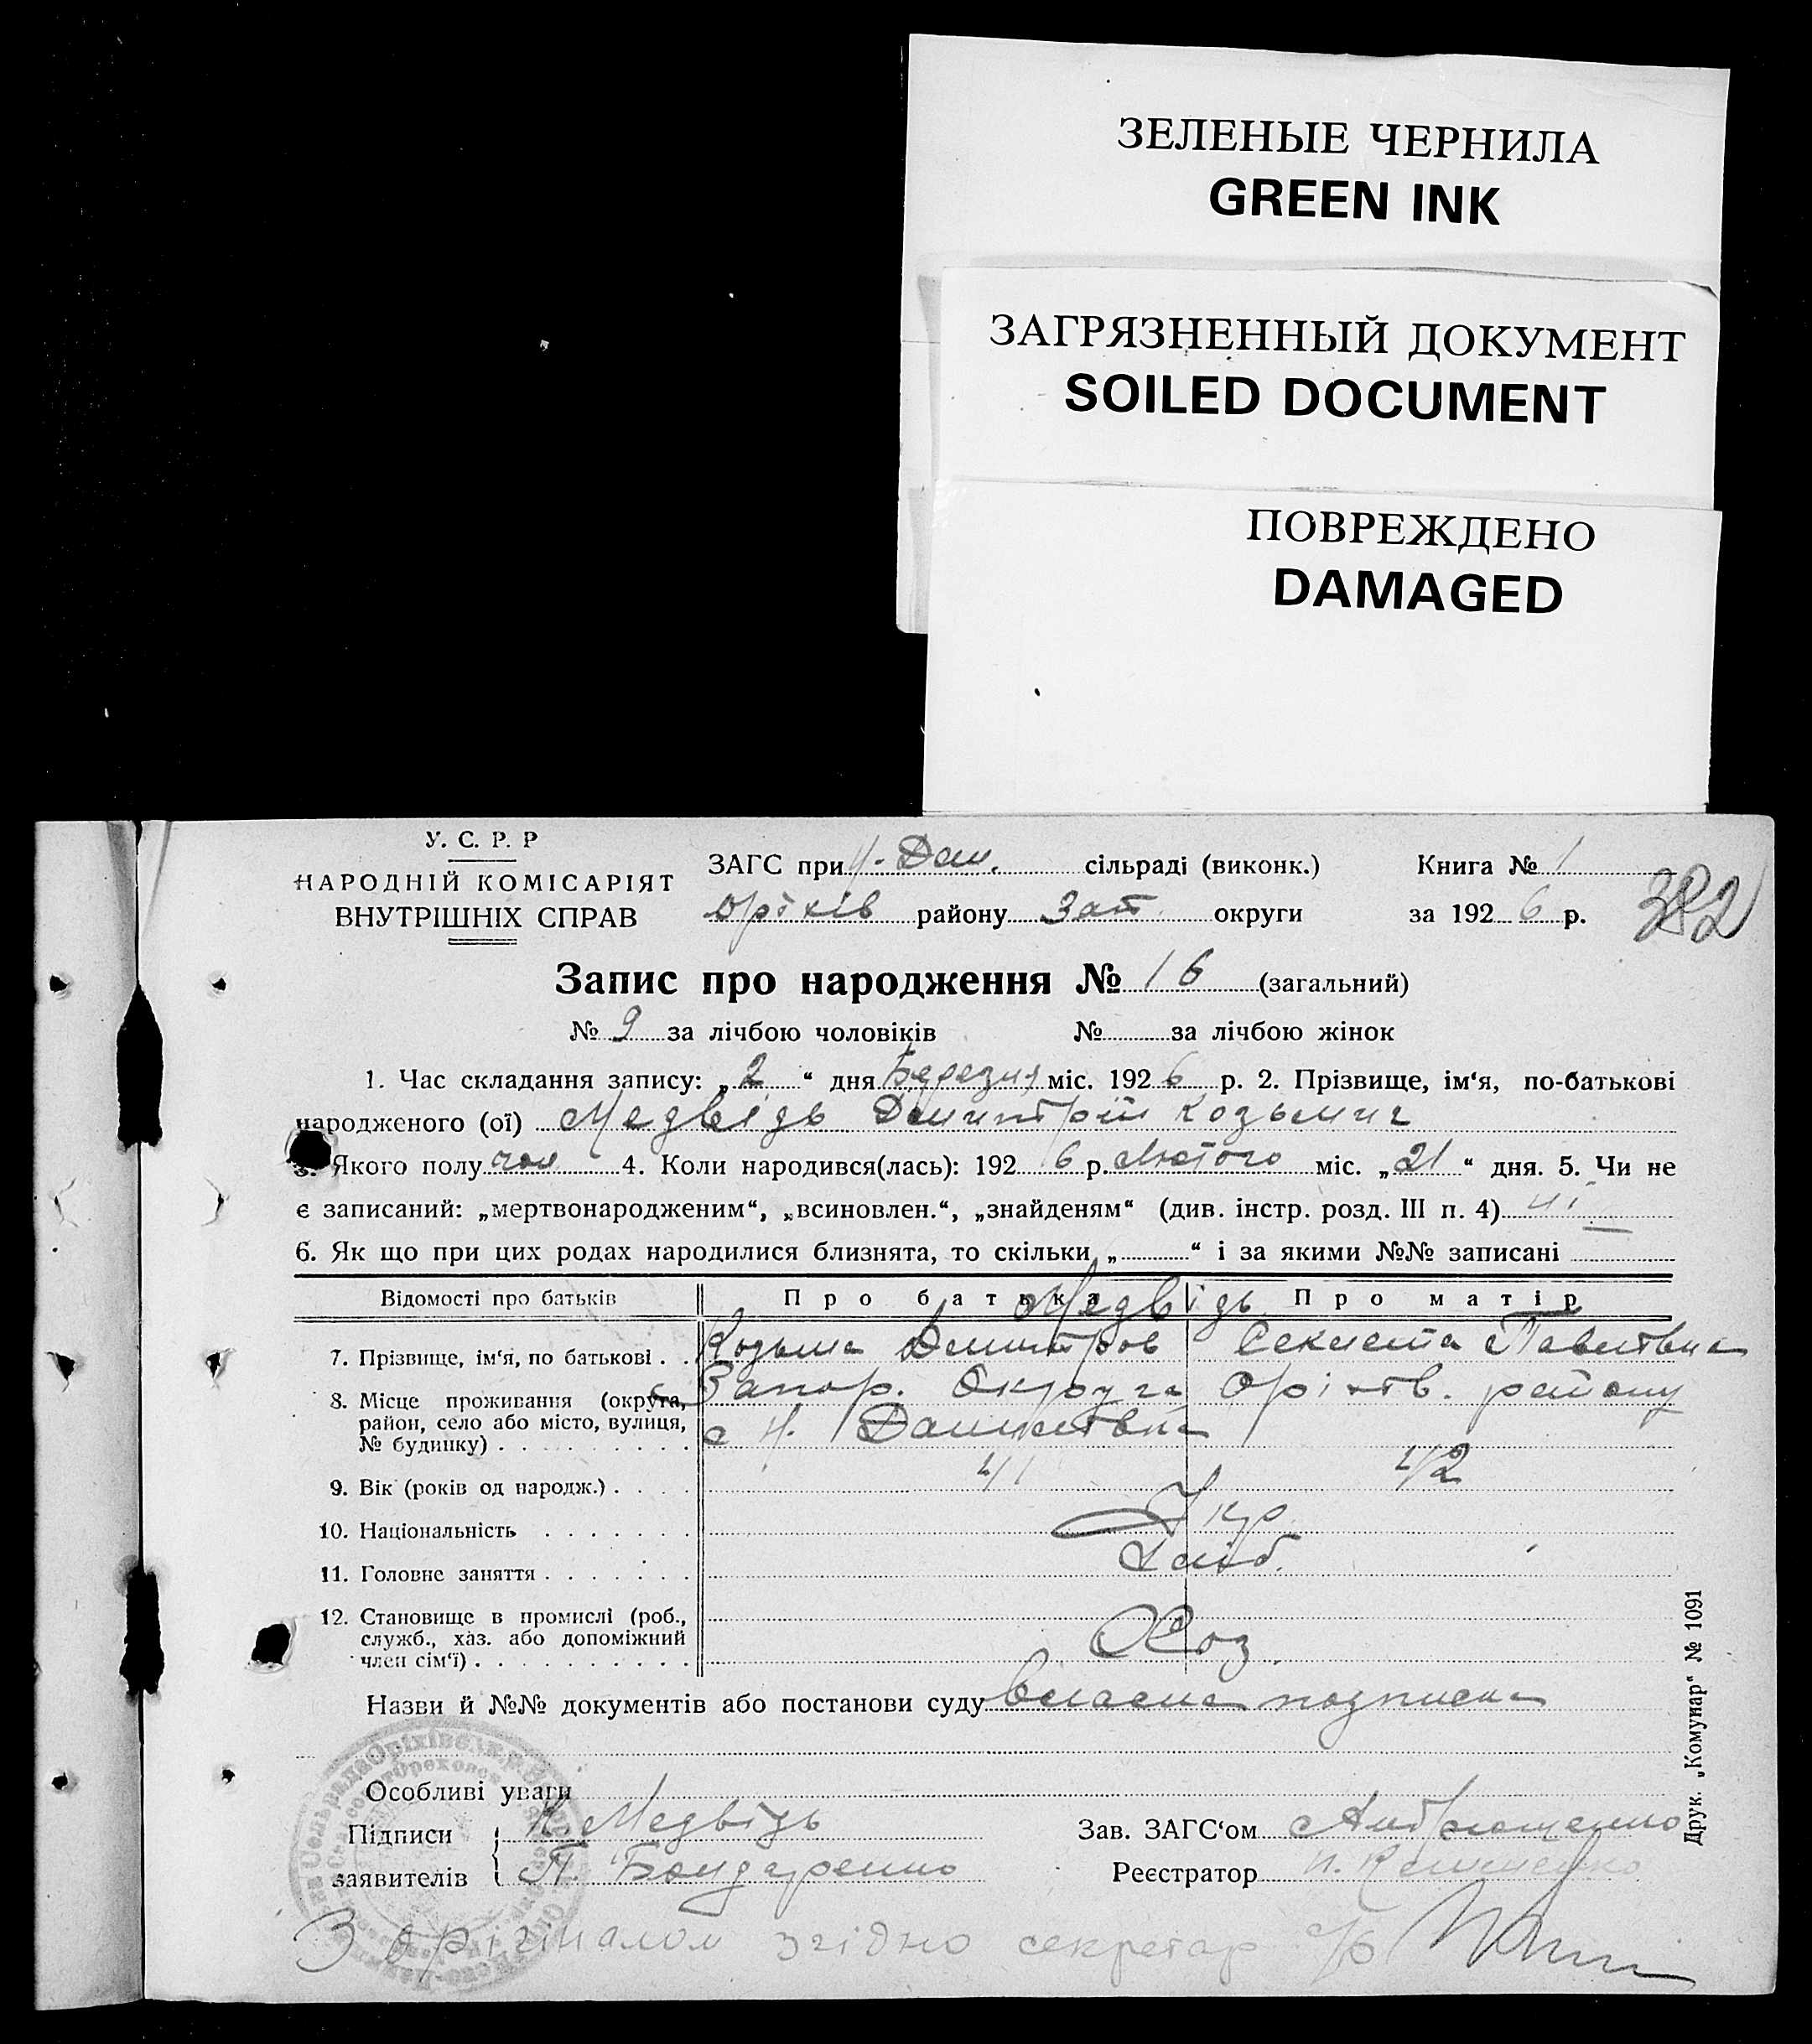 ЗЕЛЕНЫЕ ЧЕРНИЛА
GREEN INK
ЗАГРЯЗНЕННЫЙ ДОКУМЕНТ
SOILED DOCUMENT
ПОВРЕЖДЕНО
DAMAGED
У. С. Р. Р
НАРОДНІЙ КОМІСАРІЯТ
ВНУТРІШНІХ СПРАВ
ЗАГС при Н.-Дан. сільраді (виконк.) Книга № 1
Оріхів району Зап. округи за 192 6 р.
382
Запис про народження № 16 (загальний)
№ 9 за лічбою чоловіків № за лічбою жінок
1. Час складання запису: „2“ дня Березня міс. 192 6 р. 2. Прізвище, ім‘я, по-батькові
народженого (ої) Медвідь Дмитрій Козьмич
3. Якого полу чол 4. Коли народився(лась): 192 6 р. Лютого міс. „21“ дня. 5. Чи не
є записаний: „мертвонародженим“, „всиновлен.“, „знайденям“ (див. інстр. розд. III п. 4) ні
6. Як що при цих родах народилися близнята, то скільки „ “ і за якими №№ записані
Відомості про батьків Про батька Про матір
Медвідь
7. Прізвище, ім‘я, по батькові . . Козьма Дмитров Павлівна
8. Місце проживання (округа, Запор. Округа Оріхів. району
район, село або місто, вулиця, с Н. Данилівка
№ будинку) . . . . . . . . .
9. Вік (років од народж.) . . . . 41 42
10. Національність . . . . . . . Укр.
11. Головне заняття . . . . . . . Хліб.
12. Становище в промислі (роб.,
служб., хаз. або допоміжний Хоз.
член сім‘ї) . . . . . . . . . .
Назви й №№ документів або постанови суду власна подписка
Особливі уваги
Підписи К. Медвідь Зав. ЗАГС‘ом
заявителів П. Бондаренко Реєстратор
З орігіналом згідно секретар с/р
Друк. „Комунар“ № 1091